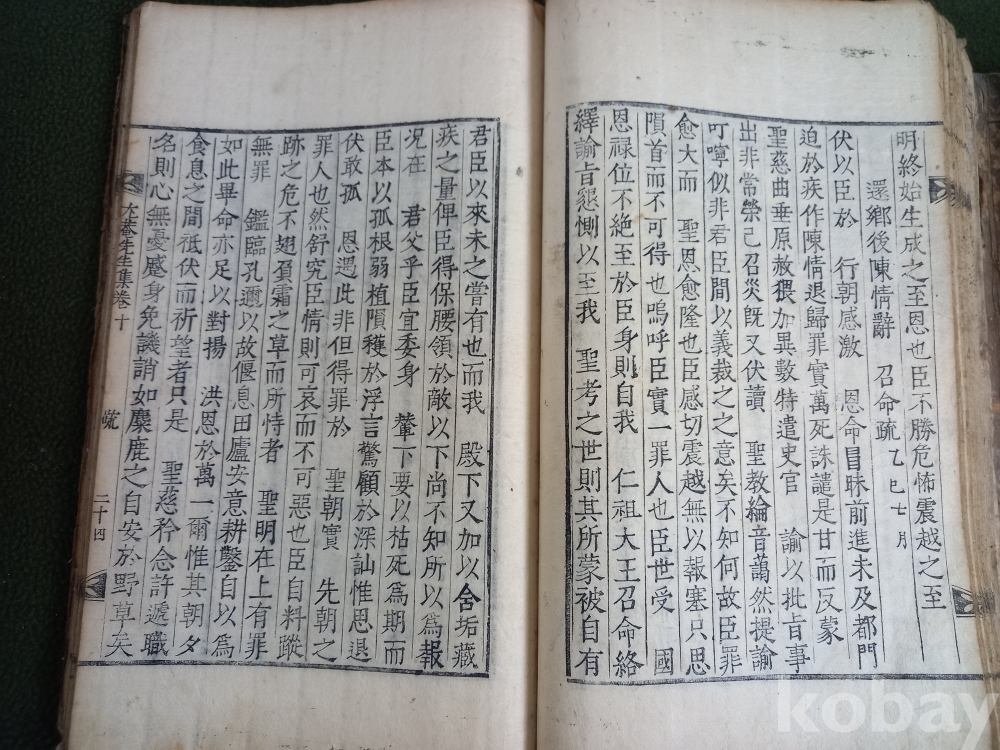 明終始生成之至恩也臣不勝危怖震越之至
還鄉後陳情辭 召命疏 乙巳七月
伏以臣於 行朝感激 恩命冒昧前進未及都門
迫於疾作陳情退歸罪實萬死誅譴是甘而反蒙
聖慈曲垂原赦猥加異數特遣史官 諭以批旨事
出非常榮己召災旣又伏讀 聖敎綸音藹然提諭
叮嚀似非君臣間以義裁之之意矣不知何故臣罪
愈大而 聖恩愈隆也臣感切震越無以報塞只思
隕首而不可得也嗚呼臣實一罪人也臣世受 國
恩祿位不絶至於臣身則自我 仁祖大王召命絡
繹諭旨懇惻以至我 聖考之世則其所蒙被自有
君臣以來未之嘗有也而我 殿下又加以舍垢藏
疾之量俾臣得保腰領於敵以下尚不知所以爲報
况在 君父乎臣宜委身 輦下要以枯死爲期而
臣本以孤根弱植隕穫於浮言驚顧於深訕惟思退
伏敢孤 恩遇此非但得罪於 聖朝實 先朝之
罪人也然舒究臣情則可哀而不可惡也臣自料蹤
跡之危不翅殞霜之草而所恃者 聖明在上有罪
無罪 鑑臨孔邇以故偃息田廬安意耕鑿自以爲
如此畢命亦足以對揚 洪恩於萬一爾惟其朝夕
食息之間祗伏而祈望者只是 聖慈矜念許遞職
名則心無憂蹙身免譏誚如麋鹿之自安於野草矣
尤菴先生集卷十 疏 二十四
kobay